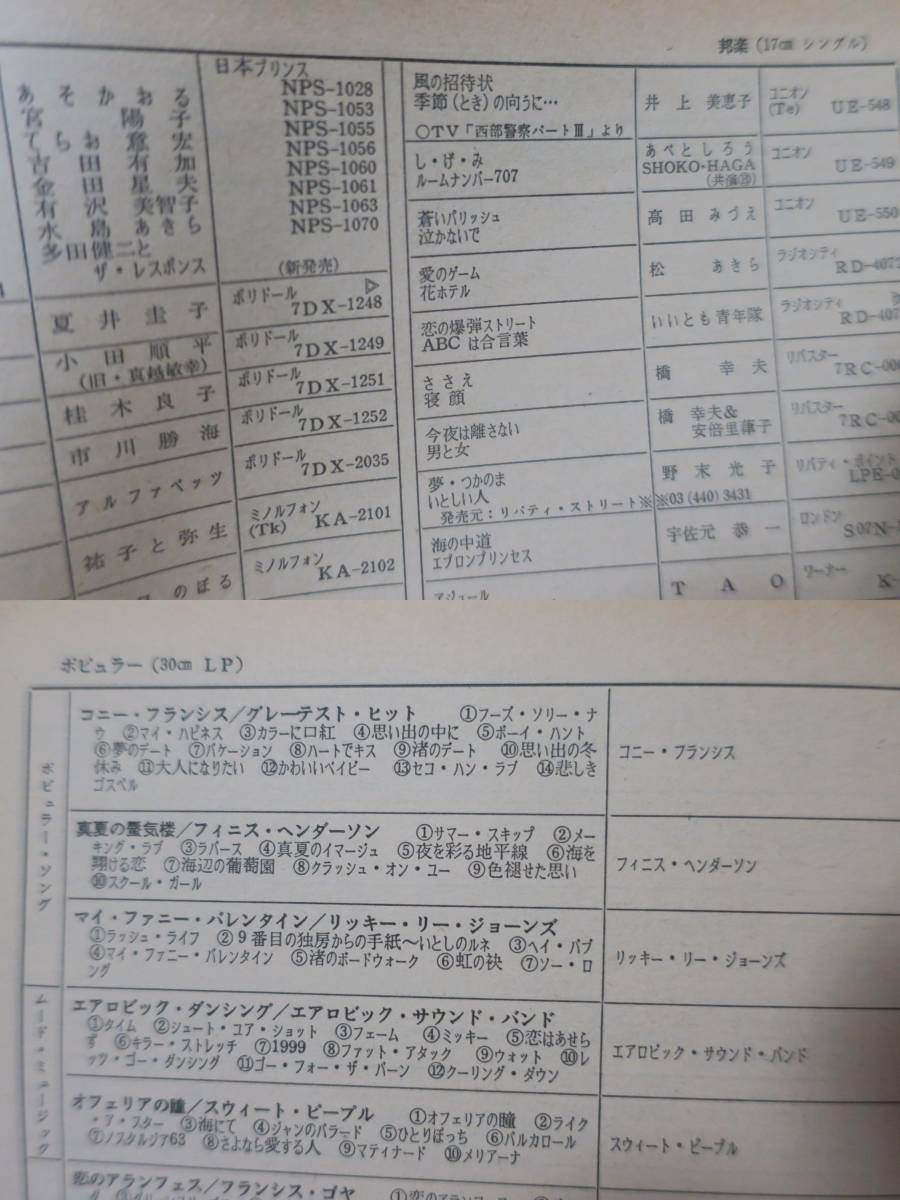 邦楽 (17㎝ シングル)
日本プリンス
あそかおる NPS-1028
宮陽子 NPS-1053
てらお意宏 NPS-1055
吉田有加 NPS-1056
金田星夫 NPS-1060
有沢美智子 NPS-1061
水島あきら NPS-1063
多田健二と NPS-1070
ザ・レスポンス (新発売)
夏井圭子 ポリドール ▷
7DX-1248
小田順平 ポリドール
(旧・真越敏幸) 7DX-1249
桂木良子 ポリドール
7DX-1251
市川勝海 ポリドール
7DX-1252
アルファベッツ ポリドール
7DX-2035
祐子と弥生 ミノルフォン
(Tk) KA-2101
のぼる ミノルフォン
KA-2102
風の招待状 井上美恵子 ユニオン
季節(とき)の向うに… (Te) UE-548
○TV「西部警察パートⅢ」より
し・げ・み あべとしろう ユニオン
ルームナンバー707 SHOKO・HAGA UE-549
蒼いパリッシュ 高田みづえ ユニオン
泣かないで UE-550
愛のゲーム 松あきら ラジオシティ
花ホテル RD-4072
恋の爆弾ストリート いいとも青年隊 ラジオシティ
ABCは合言葉 RD-407
ささえ 橋幸夫 リバスター
寝顔 7RC-00
今夜は離さない 橋幸夫& リバスター
男と女 安倍里葎子 7RC-00
夢・つかのま 野末光子 リバティ・ポイント
いとしい人 LPE-0
発売元:リバティ・ストリート※ ※03(440)3431
海の中道 宇佐元恭一 ロンドン
エプロンプリンセス S07N-
アジュール TAO ワーナー
K-
ポピュラー (30㎝ LP)
ポピュラー・ソング
コニー・フランシス/グレーテスト・ヒット ①フーズ・ソリー・ナ
ウ ②マイ・ハピネス ③カラーに口紅 ④思い出の中に ⑤ボーイ・ハント
⑥夢のデート ⑦バケーション ⑧ハートでキス ⑨渚のデート ⑩思い出の冬
休み ⑪大人になりたい ⑫かわいいベイビー ⑬セコ・ハン・ラブ ⑭悲しき
ゴスペル
コニー・フランシス
真夏の蜃気楼/フィニス・ヘンダーソン ①サマー・スキップ ②メー
キング・ラブ ③ラバース ④真夏のイマージュ ⑤夜を彩る地平線 ⑥海を
翔ける恋 ⑦海辺の葡萄園 ⑧クラッシュ・オン・ユー ⑨色褪せた思い
⑩スクール・ガール
フィニス・ヘンダーソン
マイ・ファニー・バレンタイン/リッキー・リー・ジョーンズ
①ラッシュ・ライフ ②9番目の独房からの手紙〜いとしのルネ ③ヘイ・バブ
④マイ・ファニー・バレンタイン ⑤渚のボードウォーク ⑥虹の袂 ⑦ソー・ロ
ング
リッキー・リー・ジョーンズ
ムード・ミュージック
エアロビック・ダンシング/エアロビック・サウンド・バンド
①タイム ②シュート・ユア・ショット ③フェーム ④ミッキー ⑤恋はあせら
ず ⑥キラー・ストレッチ ⑦1999 ⑧ファット・アタック ⑨ウォット ⑩レ
ッツ・ゴー・ダンシング ⑪ゴー・フォー・ザ・バーン ⑫クーリング・ダウン
エアロビック・サウンド・バンド
オフェリアの瞳/スウィート・ピープル ①オフェリアの瞳 ②ライク
・ア・スター ③海にて ④ジャンのバラード ⑤ひとりぼっち ⑥バルカロール
⑦ノスタルジア63 ⑧さよなら愛する人 ⑨マティナード ⑩メリアーナ
スウィート・ピープル
恋のアランフェス/フランシス・ゴヤ ①恋のアランフェ